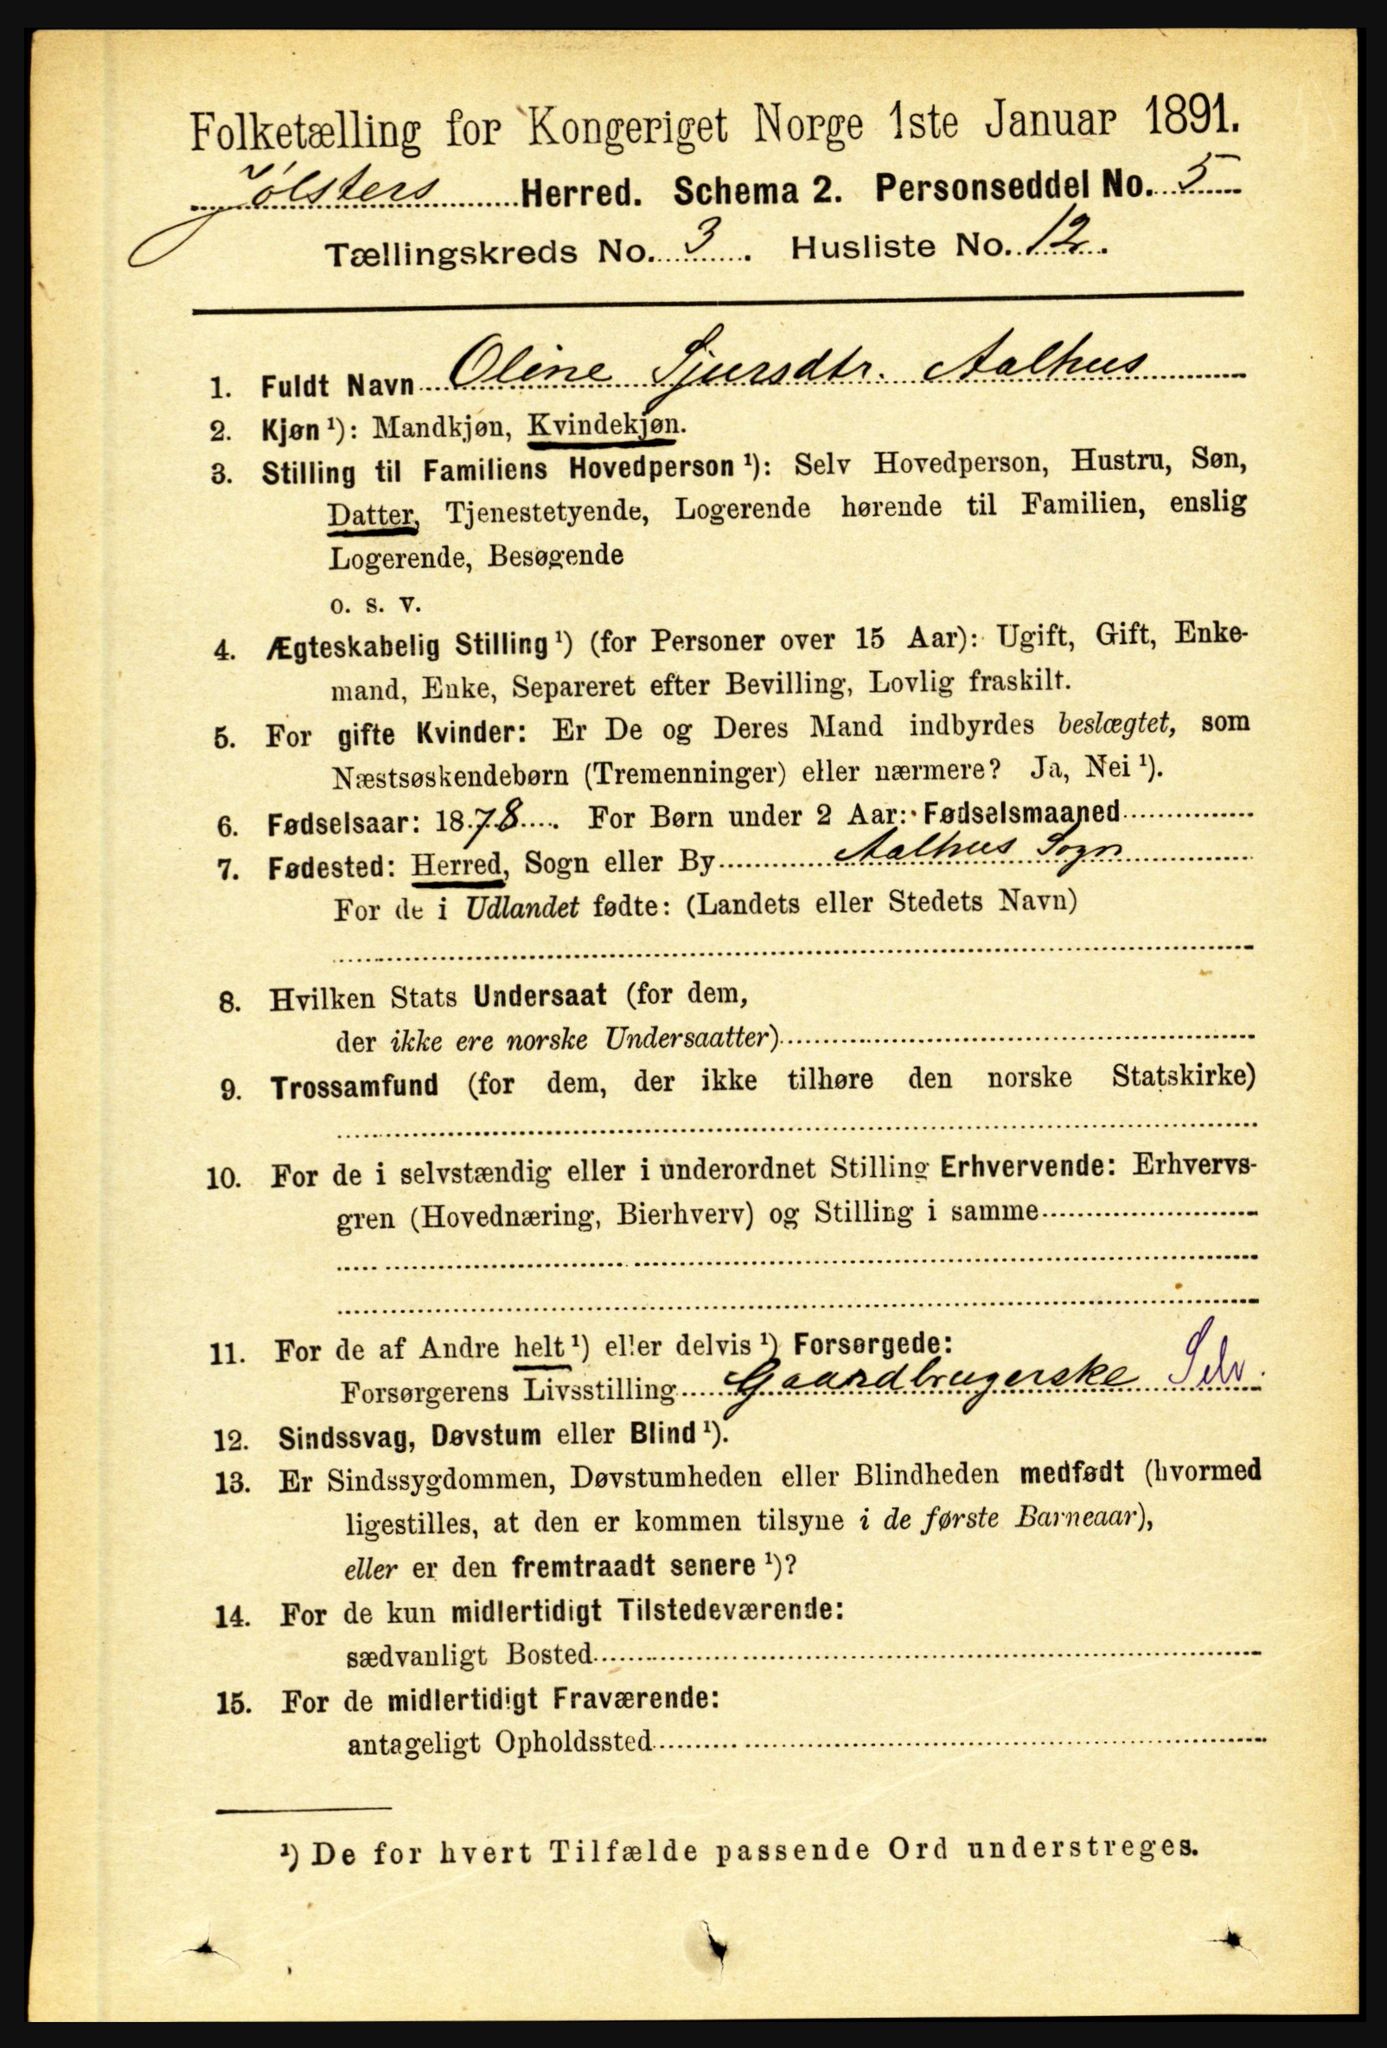 Folketælling for Kongeriget Norge 1ste Januar 1891.
Jølsters Herred. Schema 2. Personseddel No. 5
Tællingskreds No. 3. Husliste No. 12.
1. Fuldt Navn Oline Sjursdtr. Aalhus
2. Kjøn ¹): Mandkjøn, Kvindekjøn.
3. Stilling til Familiens Hovedperson ¹): Selv Hovedperson, Hustru, Søn,
Datter, Tjenestetyende, Logerende hørende til Familien, enslig
Logerende, Besøgende
o. s. v.
4. Ægteskabelig Stilling ¹) (for Personer over 15 Aar): Ugift, Gift, Enke-
mand, Enke, Separeret efter Bevilling, Lovlig fraskilt.
5. For gifte Kvinder: Er De og Deres Mand indbyrdes beslægtet, som
Næstsøskendebørn (Tremenninger) eller nærmere? Ja, Nei ¹).
6. Fødselsaar: 1878. For Børn under 2 Aar: Fødselsmaaned
7. Fødested: Herred, Sogn eller By Aalhus Sogn
For de i Udlandet fødte: (Landets eller Stedets Navn)
8. Hvilken Stats Undersaat (for dem,
der ikke ere norske Undersaatter)
9. Trossamfund (for dem, der ikke tilhøre den norske Statskirke)
10. For de i selvstændig eller i underordnet Stilling Erhvervende: Erhvervs-
gren (Hovednæring, Bierhverv) og Stilling i samme
11. For de af Andre helt ¹) eller delvis ¹) Forsørgede:
Forsørgerens Livsstilling Gaardbrugerske Selv.
12. Sindssvag, Døvstum eller Blind ¹).
13. Er Sindssygdommen, Døvstumheden eller Blindheden medfødt (hvormed
ligestilles, at den er kommen tilsyne i de første Barneaar),
eller er den fremtraadt senere ¹)?
14. For de kun midlertidigt Tilstedeværende:
sædvanligt Bosted
15. For de midlertidigt Fraværende:
antageligt Opholdssted
¹) De for hvert Tilfælde passende Ord understreges.